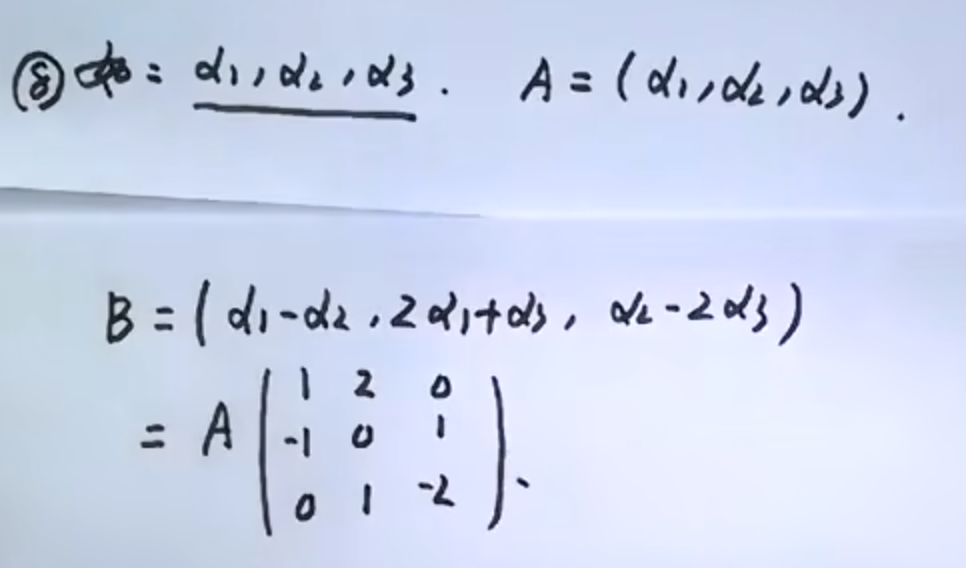 ⑧ : α1, α2, α3. A = (α1, α2, α3).
B = (α1-α2, 2α1+α3, α2-2α3)
= A ( 1 2 0
-1 0 1
0 1 -2 ).